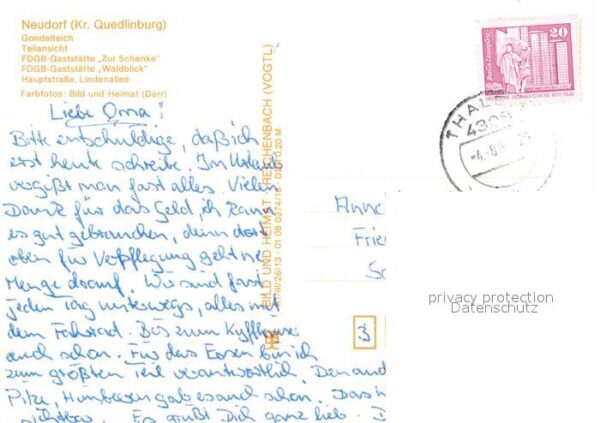 Neudorf (Kr. Quedlinburg)
Gondelteich
Teilansicht
FDGB-Gaststätte „Zur Schenke“
FDGB-Gaststätte „Waldblick“
Hauptstraße. Lindenallee
Farbfotos: Bild und Heimat (Darr)
Liebe Oma!
Bitte entschuldige, daß ich
erst heute schreibe. Im Urlaub
vergißt man fast alles. Vielen
Dank für das Geld, ich kann
es gut gebrauchen, denn der
oben für Verpflegung geht ne
Menge darauf. Wir sind fast
jeden Tag unterwegs, alles mit
dem Fahrrad. Bis zum Kyffhäuser
auch schon. Für das Essen bin ich
zum größten Teil verantwortlich. Den and
Pilze, Himbeeren gab es auch schon. Das
Es grüßt Dich ganz lieb
BILD UND HEIMAT REICHENBACH (VOGTL)
A1/III/26/13 01 08 0374/18 0,20 M
20
THAL
4308
Anne
Frie
privacy protection
Datenschutz